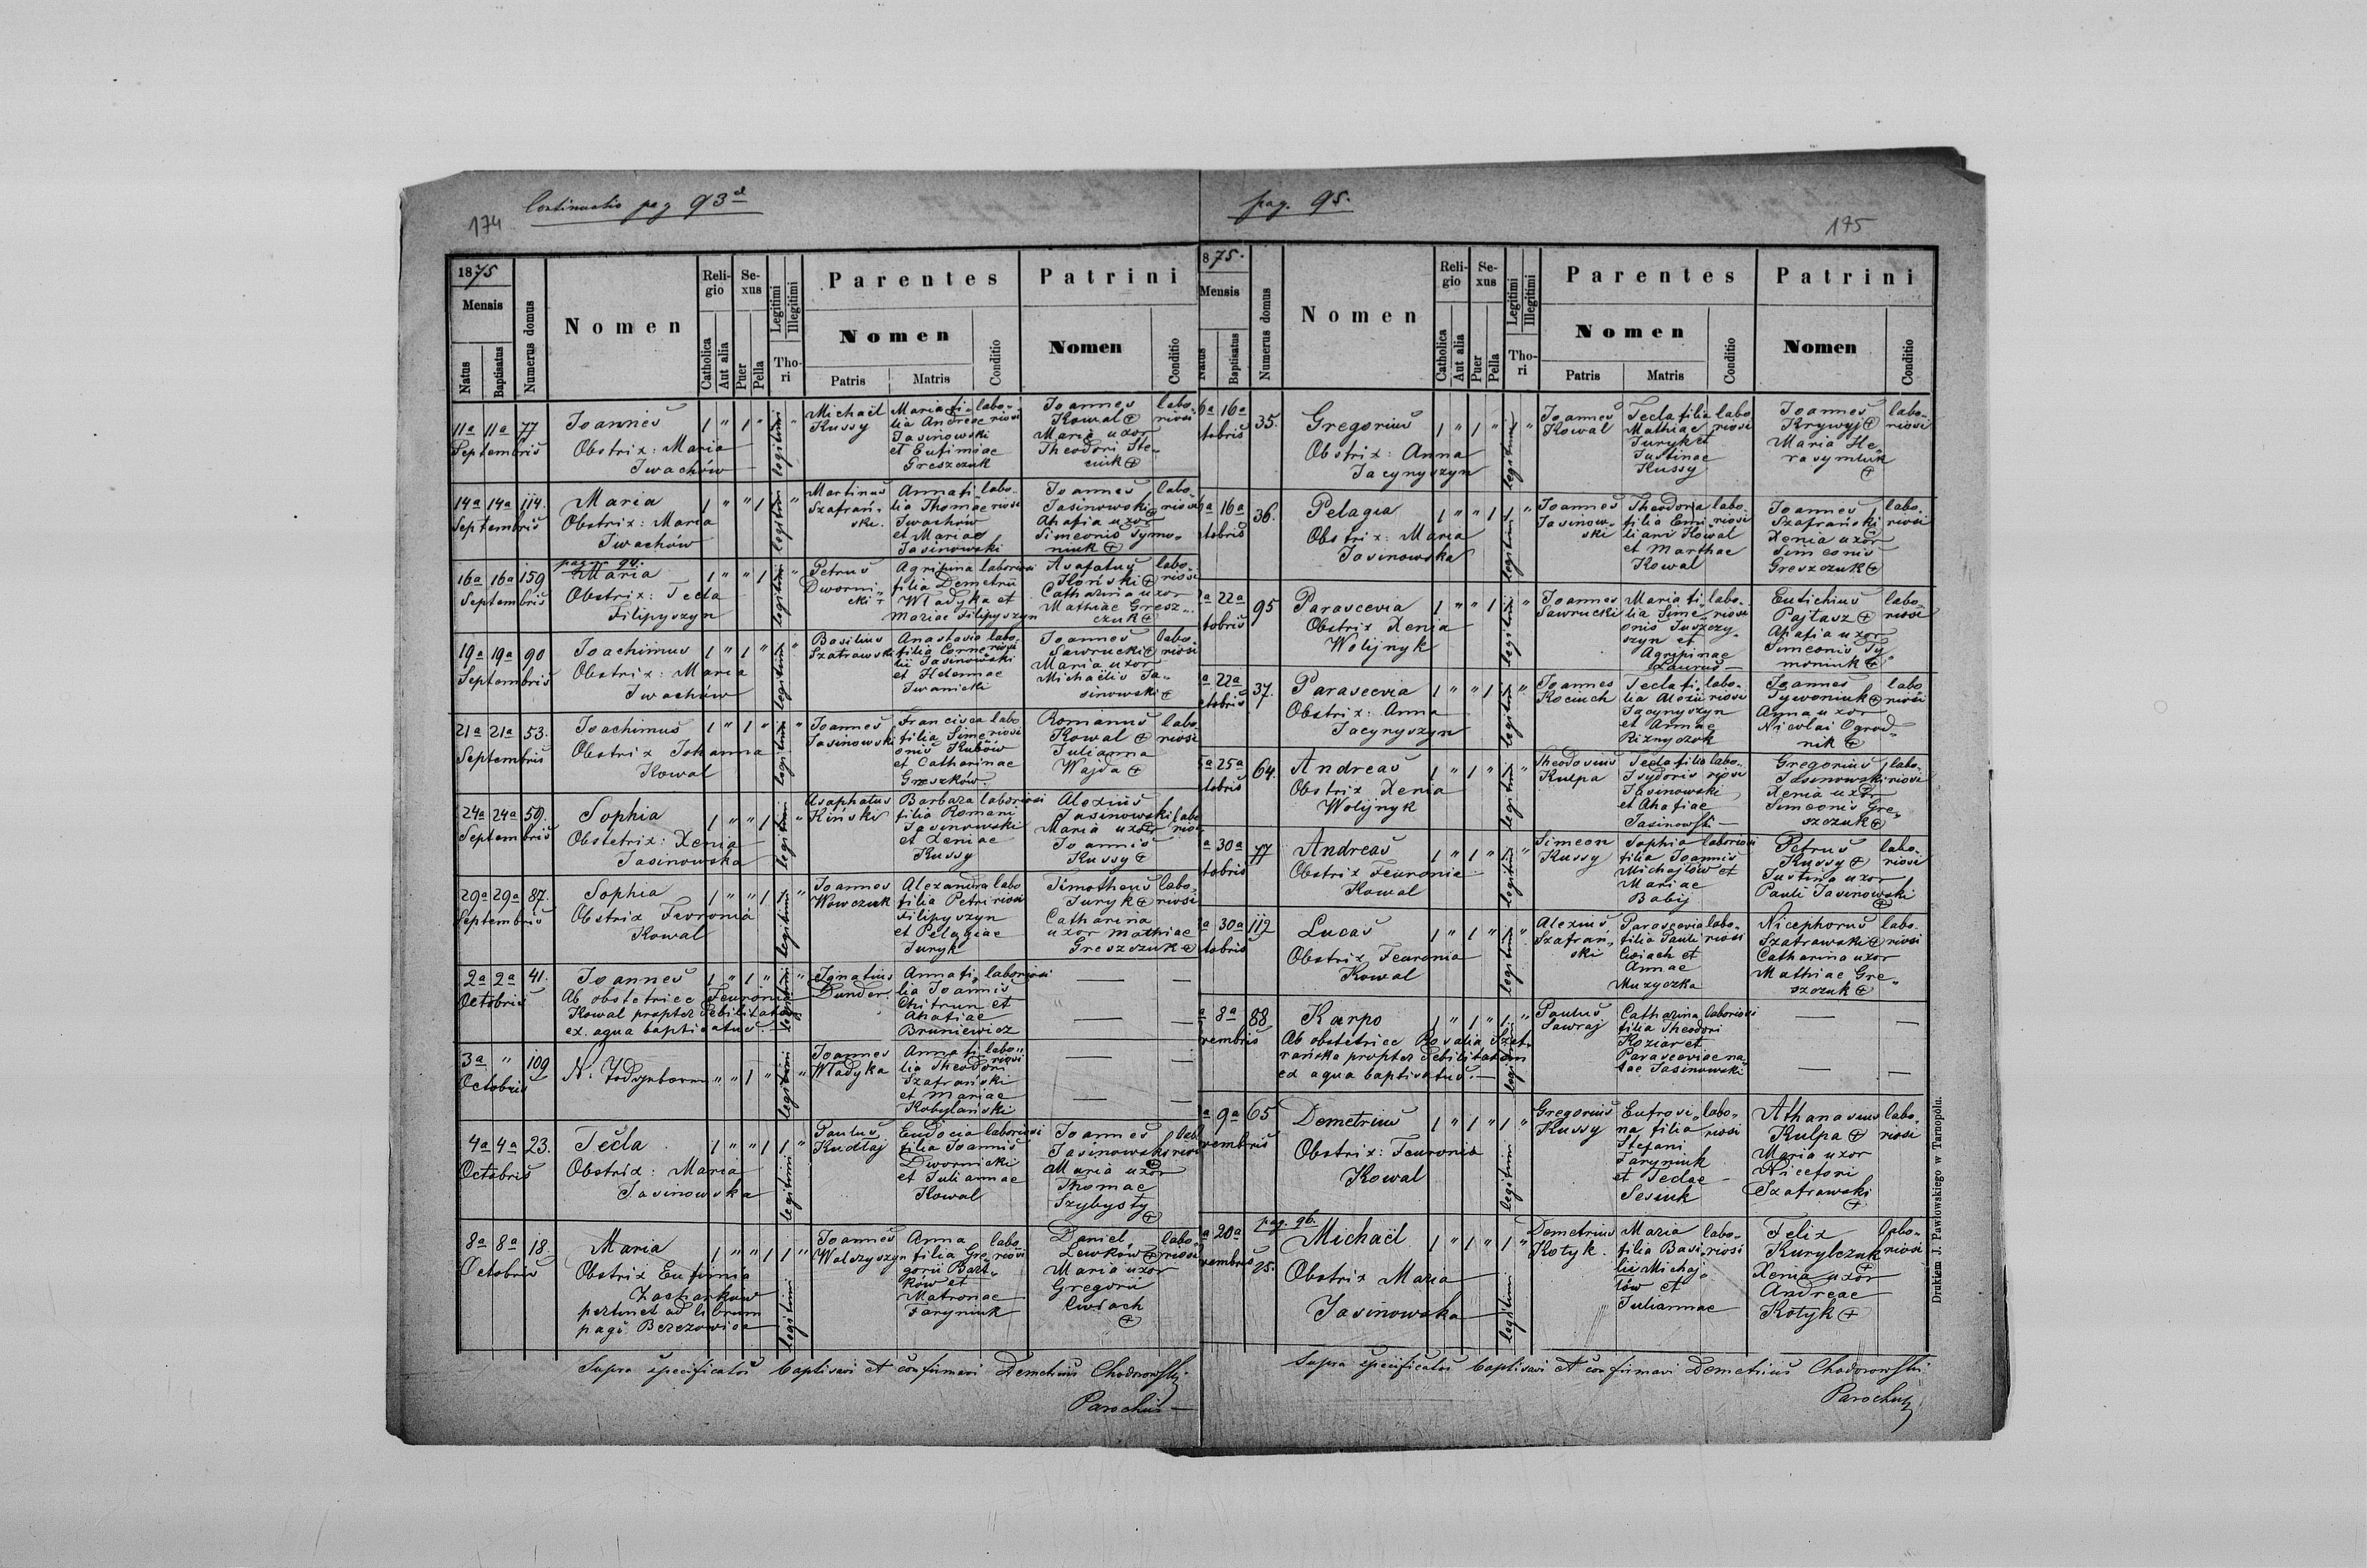 174
Continuatio pag 93
1875
Mensis
Natus
Baptisatus
Numerus domus
Nomen
Religio
Catholica
Aut alia
Sexus
Puer
Pella
Legitimi
Illegitimi
Thori
Parentes
Nomen
Patris
Matris
Conditio
Patrini
Nomen
Conditio
11a 11a 77
Septembris
Joannes
Obstrix: Maria
Iwachów
1 " 1 " legitimi "
Michaël
Kussy
Maria fi-
lia Andreae
Jasinowski
et Eufimiae
Greszczuk
labo-
riosi
Joannes
Kowal
Maria uxor
Theodori Ste-
ciuk
labo-
riosi
14a 14a 114.
Septembris
Maria
Obstrix: Maria
Iwachów
1 " " 1 legitimi "
Martinus
Szafrań-
ski.
Anna fi-
lia Thomae
Iwachów
et Mariae
Jasinowski
labo-
riosi
Joannes
Jasinowski
Ahafia uxor
Simeonis Symo-
niuk
labo-
riosi
16a 16a 159
Septembris
pag. 94.
Maria
Obstrix: Tecla
Filipyszyn
1 " " 1 legitimi "
Petrus
Dworni-
cki
Agripina
filia Demetrii
Władyka et
Mariae Filipyszyn
laboriosi
Asafatus
Koński
Catharina uxor
Mathiae Gresz-
czuk
labo-
riosi
19a 19a 90
Septembris
Joachimus
Obstrix: Maria
Iwachów
1 " 1 " legitimi "
Basilius
Szatrawski
Anastasia
filia Corne-
lii Jasinowski
et Helennae
Iwanicki
labo-
riosi
Joannes
Sawrucki
Maria uxor
Michaëlis Ja-
sinowski
labo-
riosi
21a 21a 53.
Septembris
Joachimus
Obstrix Johanna
Kowal
1 " 1 " legitimi "
Joannes
Jasinowski
Francisca
filia Sime-
onis Kubów
et Catharinae
Greszków.
labo
riosi
Romanus
Kowal
Julianna
Wajda
labo
riosi
24a 24a 59.
Septembris
Sophia
Obstetrix: Xenia
Jasinowska
1 " " 1 legitimi "
Asaphatus
Kiński
Barbara
filia Romani
Jasinowski
et Xeniae
Kussy
laboriosi
Alexius
Jasinowski
Maria uxor
Joannis
Kussy
labo
rio-
29a 29a 87.
Septembris
Sophia
Obstrix Fevronia
Kowal
1 " " 1 legitimi "
Joannes
Wowczuk
Alexandra
filia Petri
Filipyszyn
et Pelagiae
Juryk
labo
riosi
Timotheus
Juryk
Catharina
uxor Mathiae
Greszszuk
labo-
riosi
2a 2a 41.
Octobris
Joannes
Ab obstetrice Feuronia
Kowal propter debilitatem
ex. aqua baptisatus.
1 " 1 " legitimi "
Ignatius
Dunder.
Anna fi-
lia Joannis
Chitrun et
Ahafiae
Bruniewicz
laboriosi
3a " 109
Octobris
" " 1 " legitimi "
Joannes
Władyka
Anna fi-
lia Theodori
Szafrański
et Mariae
Kobylański
labo-
riosi
4a 4a 23.
Octobris
Tecla
Obstrix: Maria
Jasinowska
1 " " 1 legitimi "
Paulus
Kudłaj
Eudocia
filia Joannis
Dwornicki
et Juliannae
Kowal
laboriosi
Joannes
Jasinowski
Maria uxor
Thomae
Szybysty
labo
riosi
8a 8a 18.
Octobris
Maria
Obstrix Eufimia
Zacharkow
pertinet ad librum
pagi Berezowica
1 " " 1 legitimi "
Joannes
Walczyszyn
Anna
filia Gre-
gorii Bart-
ków et
Matronae
Faryniuk
labo-
riosi
Daniel
Lewków
Maria uxor
Gregorii
Cwiach
labo-
riosi
Supra specificatos baptisavi et confirmavi Demetrius Chodorowski
Parochus
pag. 95.
175
875.
Mensis
Natus
Baptisatus
Numerus domus
Nomen
Religio
Catholica
Aut alia
Sexus
Puer
Pella
Legitimi
Illegitimi
Thori
Parentes
Nomen
Patris
Matris
Conditio
Patrini
Nomen
Conditio
6a 16a 35.
tobris
Gregorius
Obstrix: Anna
Jacynyszyn
1 " 1 " legitimi "
Joannes
Kowal
Tecla filia
Mathiae
Juryk et
Justinae
Kussy
labo
riosi
Joannes
Krywyj
Maria He-
rasymiuk
labo-
riosi
16a 36.
tobris
Pelagia
Obstrix: Maria
Jasinowska
1 " " 1 legitimi "
Joannes
Jasinow-
ski
Theodoria
filia Emi-
liani Kowal
et Marthae
Kowal
labo
riosi
Joannes
Szafrański
Xenia uxor
Simeonis
Greszczuk
labo-
riosi
22a 95
tobris
Parascevia
Obstrix Xenia
Wolijnyk
1 " " 1 legitimi "
Joannes
Sawrucki
Maria fi-
lia Sime-
onis Juszczy-
szyn et
Agripinae
Laurus
labo-
riosi
Eutichius
Pajtasz
Ahafia uxor
Simeonis Ty-
moniuk
labo-
riosi
22a 37.
ctobris
Parascevia
Obstrix: Anna
Jacynyszyn
1 " " 1 legitimi "
Joannes
Kociuch
Tecla fi-
lia Alexii
Jacynyszyn
et Annae
Riznyczok
labo-
riosi
Joannes
Tywoniuk
Anna uxor
Nicolai Ogrod-
nik
labo
riosi
25a 64.
tobris
Andreas
Obstrix Xenia
Wolijnyk
1 " 1 " legitimi "
Theodosius
Kulpa
Tecla filia
Isydoris
Jasinowski
et Ahafiae
Jasinowski
labo-
riosi
Gregorius
Jasinowski
Xenia uxor
Simeonis Gre-
szczuk
labo-
riosi
30a 77
tobris
Andreas
Obstrix Feuronia
Kowal
1 " 1 " legitimi "
Simeon
Kussy
Sophia
filia Joannis
Michajlów et
Mariae
Babij
laboriosi
Petrus
Kussy
Justina uxor
Pauli Jasinowski
labo-
riosi
30a 112
tobris
Lucas
Obstrix Feuronia
Kowal
1 " 1 " legitimi "
Alexius
Szafrań-
ski
Parascevia
filia Pauli
Cwiach et
Annae
Muzyczka
labo-
riosi
Nicephorus
Szatrawski
Catharina uxor
Mathiae Gre-
szczuk
labo-
riosi
8a 88
vembris
Karpo
Ab obstetrice Rosalia Szaf-
rańska propter debilitatem
ex aqua baptisatus.
1 " 1 " legitimi "
Paulus
Sawraj
Catharina
filia Theodori
Koziar et
Parasceviae na-
tae Jasinowski
laboriosi
9a 65
vembris
Demetrius
Obstrix: Feuronia
Kowal
1 " 1 " legitimi "
Gregorius
Kussy
Eufrosi-
na filia
Stefani
Faryniuk
et Teclae
Sesiuk
labo-
riosi
Athanasius
Kulpa
Maria uxor
Nicefori
Szatrawski
labo-
riosi
20a 25.
vembris
pag. 96.
Michaël
Obstrix Maria
Jasinowska
1 " 1 " legitimi "
Demetrius
Kotyk.
Maria
filia Basi-
lii Michaj-
lów et
Juliannae
labo-
riosi
Felix
Kurylczuk
Xenia uxor
Andreae
Kotyk
labo-
riosi
Supra specificatos baptisavi et confirmavi Demetrius Chodorowski
Parochus
Drukiem J. Pawłowskiego w Tarnopolu.